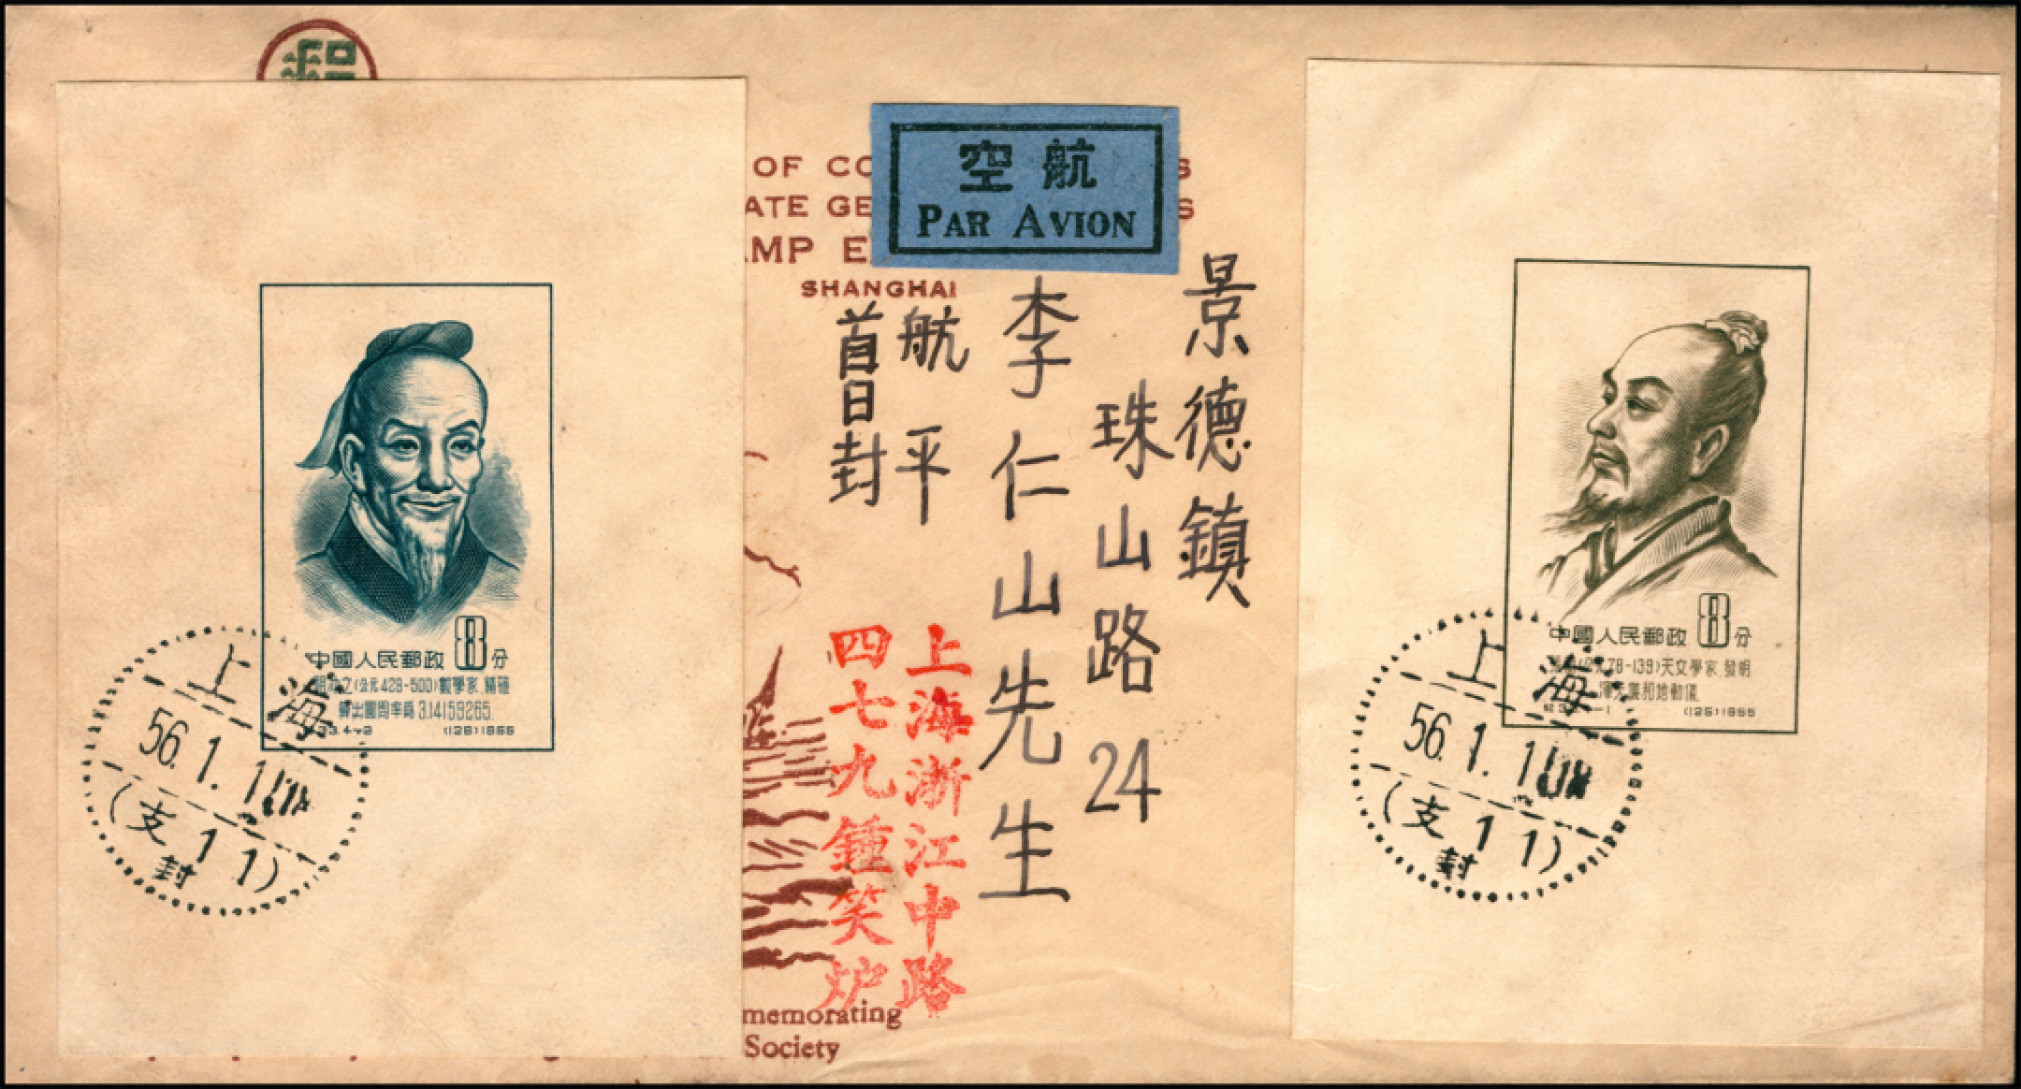 OF CO
ATE GE
MP E
SHANGHAI
空航
PAR AVION
景德鎮
珠山路24
李仁山先生
航平
首日封
上海浙江中路
四七九鍾笑炉
memorating
Society
中國人民郵政 8分
(公元429-500)數學家.精確
算出圓周率爲3.14159265.
(126)1955
上海
56.1.1
(支11)
封
中國人民郵政 8分
78-139)天文學家.發明
渾天儀和地動儀
(125)1955
上海
56.1.1
(支11)
封